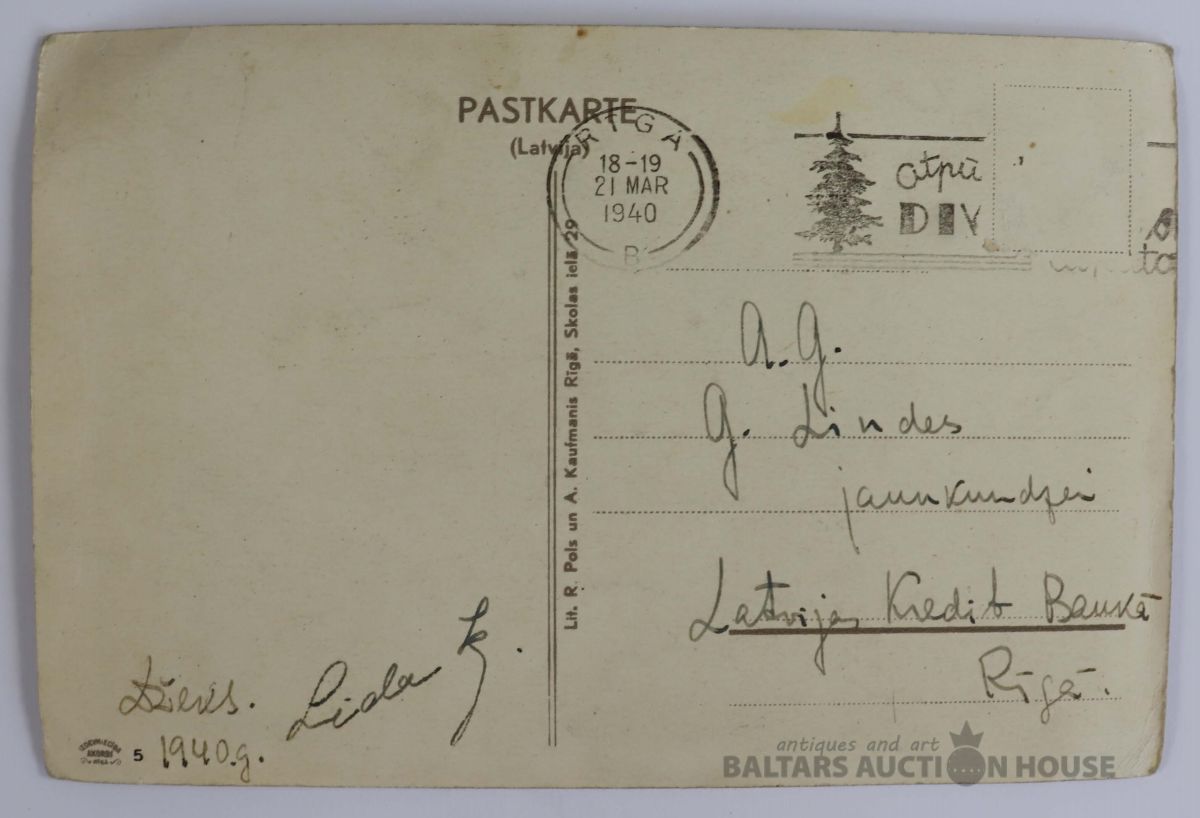 PASTKARTE
(Latvija)
RĪGĀ
18-19
21 MAR
1940
B
atpū
DIV
Lit. R. Pols un A. Kaufmanis Rīgā, Skolas ielā 29
A. G.
G. Lindes
jaunkundzei
Latvijas Kredit Bankā
Rīgā.
Lida K.
1940.g.
5
antiques and art
BALTARS AUCTION HOUSE